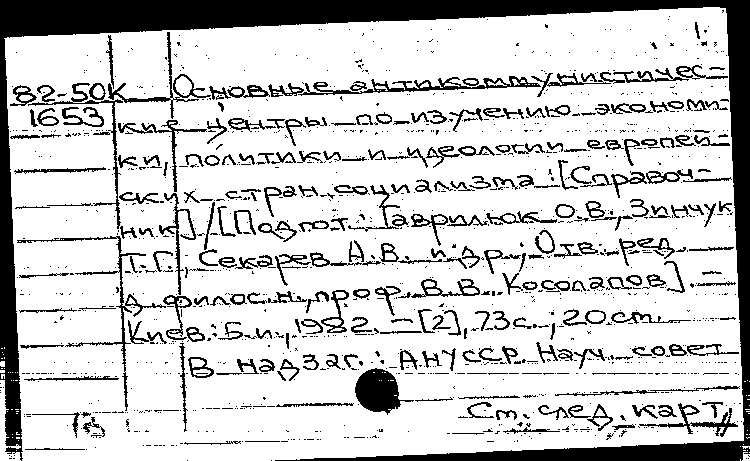 1.
82-50К Основные антикоммунистичес-
1653 кие центры по изучению экономи-
ки, политики и идеологии европей-
ских стран социализма : [Справоч-
ник] / [Подгот.: Гаврилюк О.В., Зинчук
Т.Г., Секарев А.В. и др.; Отв. ред.
д. филос. н., проф. В.В. Косолапов]. -
Киев: Б.и., 1982. - [2], 73с.; 20см.
В надзаг.: АН УССР. Науч. совет
См. след. карт.